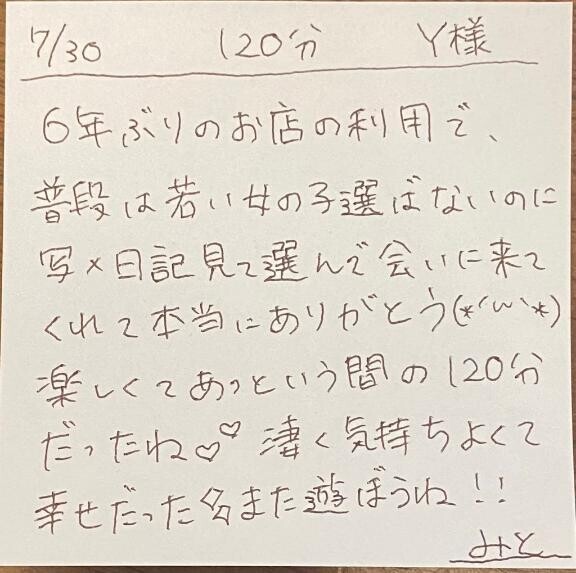 7/30 120分 Y様
6年ぶりのお店の利用で、
普段は若い女の子選ばないのに
写メ日記見て選んで会いに来て
くれて本当にありがとう(*´ω`*)
楽しくてあっという間の120分
だったね♡♡ 凄く気持ちよくて
幸せだった また遊ぼうね!!
みと